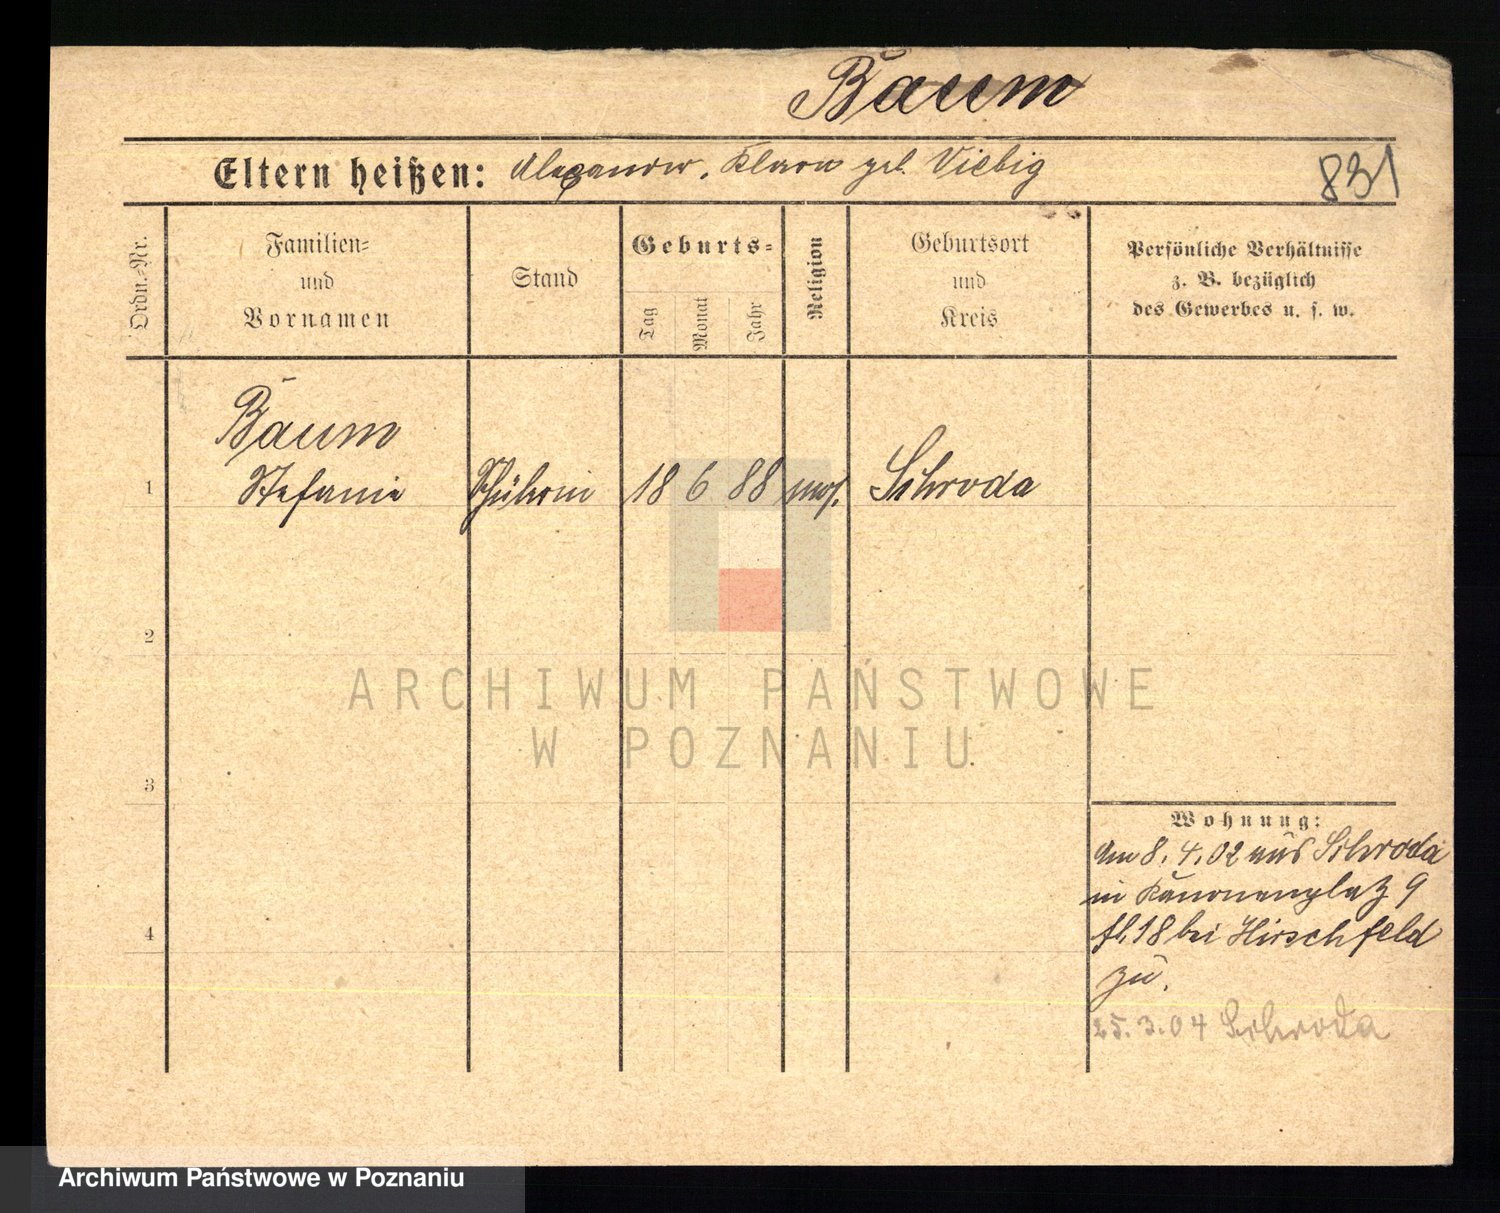 Baum
Eltern heißen: Alexander, Klara geb. Viebig
831
Ordn.-Nr.
Familien-
und
Vornamen
Stand
Geburts-
Tag
Monat
Jahr
Religion
Geburtsort
und
Kreis
Persönliche Verhältnisse
z. B. bezüglich
des Gewerbes u. s. w.
Baum
1 Stefanie Schülerin 18 6 88 mos. Schroda
2
3
4
ARCHIWUM PAŃSTWOWE
W POZNANIU
Wohnung:
Am 8. 4. 02 aus Schroda
in Kanonenplatz 9
fl. 18 bei Hirschfeld
zu.
25. 3. 04 Schroda
Archiwum Państwowe w Poznaniu